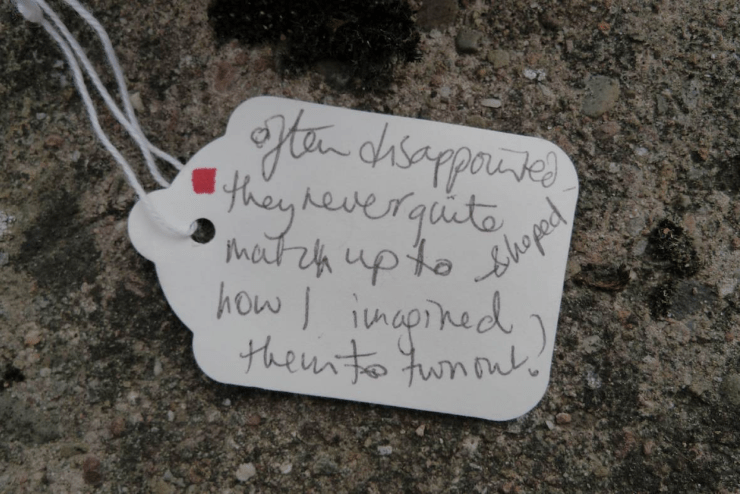 often disappointed
they never quite
match up to shaped
how I imagined
them to turn out!